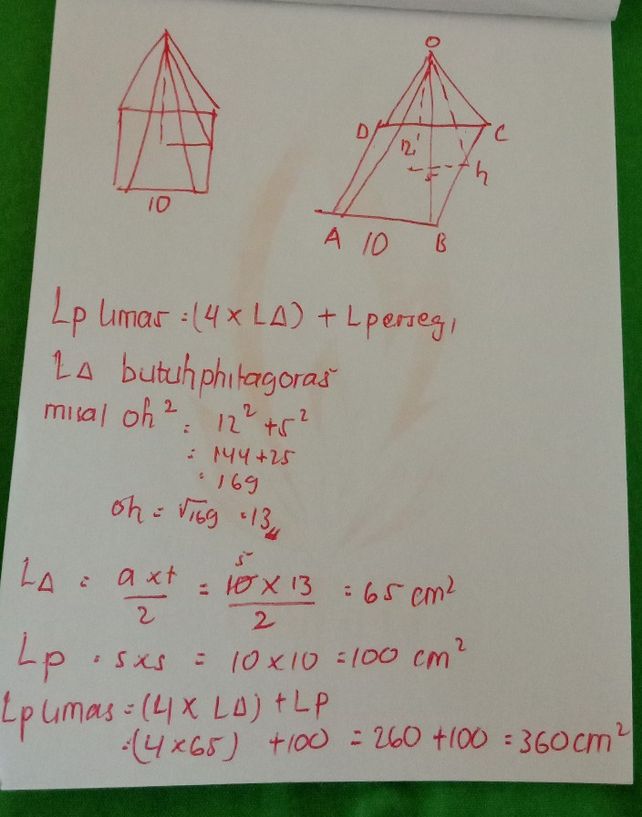 10
O
D
C
12
5
h
A 10 B
Lp limas = (4 x L∆) + Lpersegi
L∆ butuh phitagoras
misal oh² = 12² + 5²
= 144 + 25
= 169
oh = √169 = 13
L∆ = a x t / 2 = 5 10 x 13 / 2 = 65 cm²
Lp = s x s = 10 x 10 = 100 cm²
Lp limas = (4 x L∆) + LP
= (4 x 65) + 100 = 260 + 100 = 360 cm²